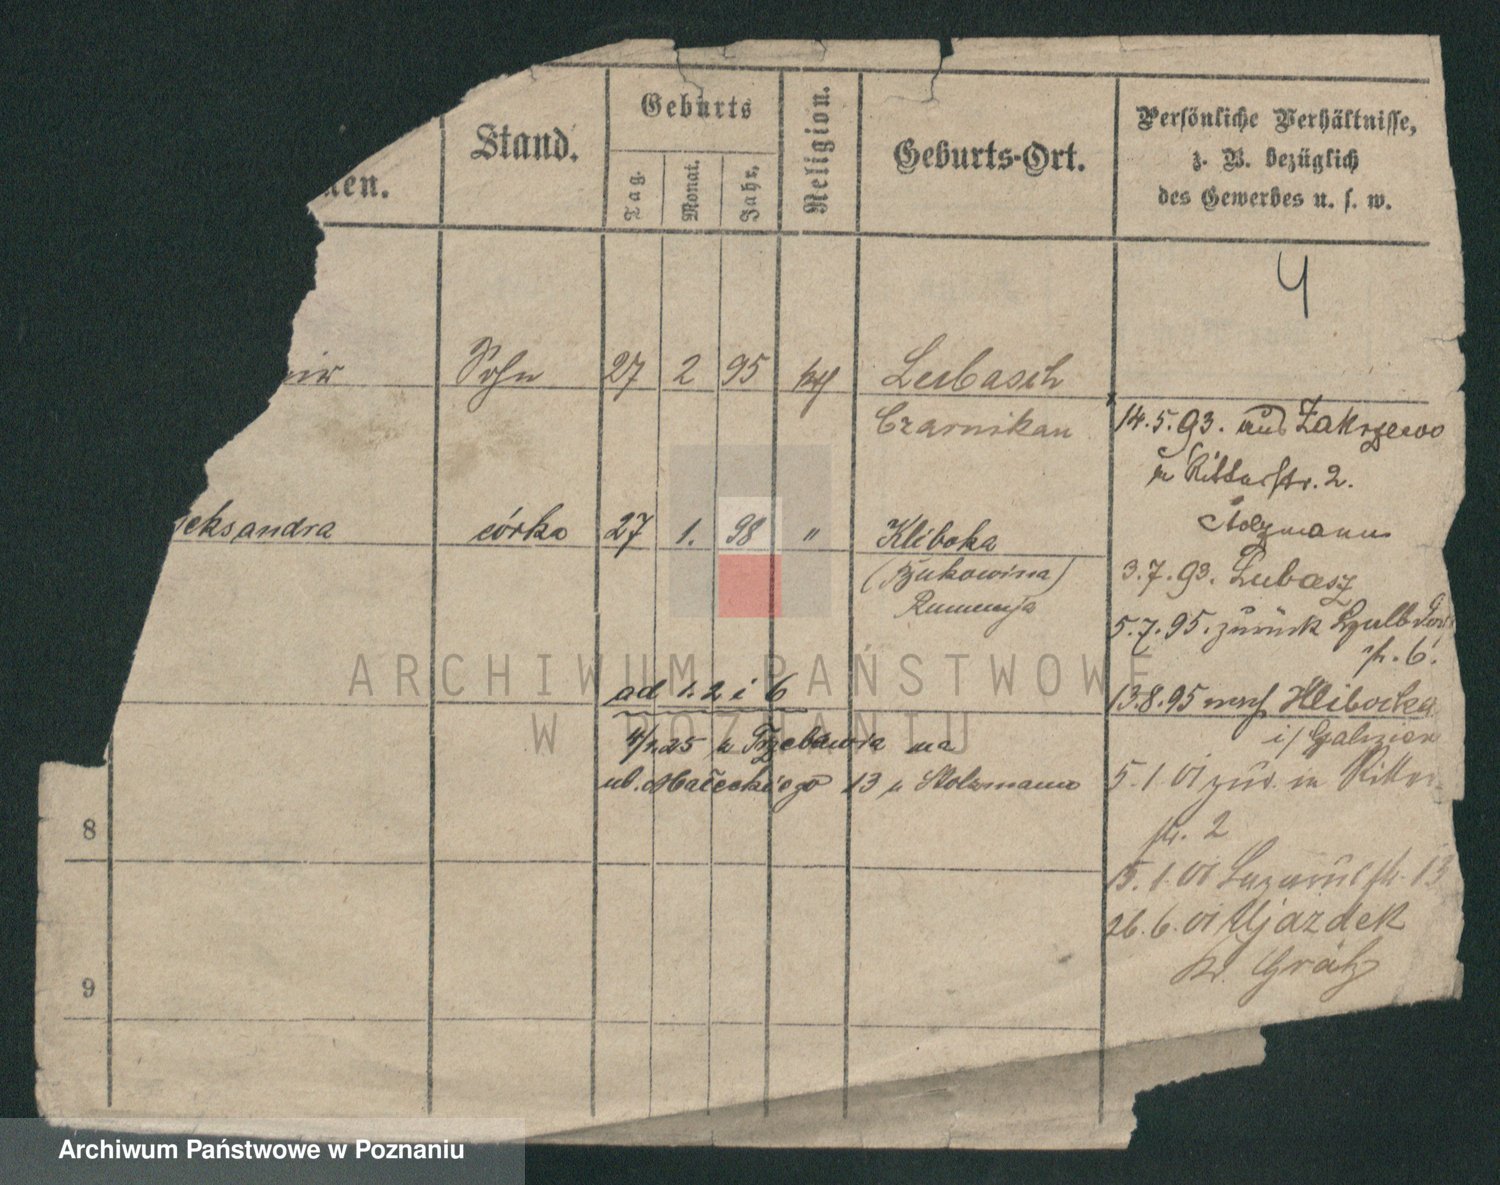 Stand.
Geburts
Tag.
Monat.
Jahr.
Religion.
Geburts-Ort.
Persönliche Verhältnisse,
z. B. bezüglich
des Gewerbes u. s. w.
men.
4
Sohn 27 2 95 Lubasch
Czarnikau
14.5.93. aus Zakrzewo
Ritterstr. 2.
Stolzmann
eksandra córka 27 1. 98 " Kliboka
(Bukowina)
Rumunja
3.7.93. Lubasz
5.7.95. zurück
str. 6.
13.8.95 nach Hlibocka
i/ Galizien
ad 1. 2 i 6
25 z Trzebawia na
ul. Małeckiego 13 u Stolzmann
5.1.01 zur. in Ritter
str. 2
15.1.01 str. 13
26.6.01 Ujazdek
Kr. Grätz
8
9
ARCHIWUM PAŃSTWOWE
W POZNANIU
Archiwum Państwowe w Poznaniu